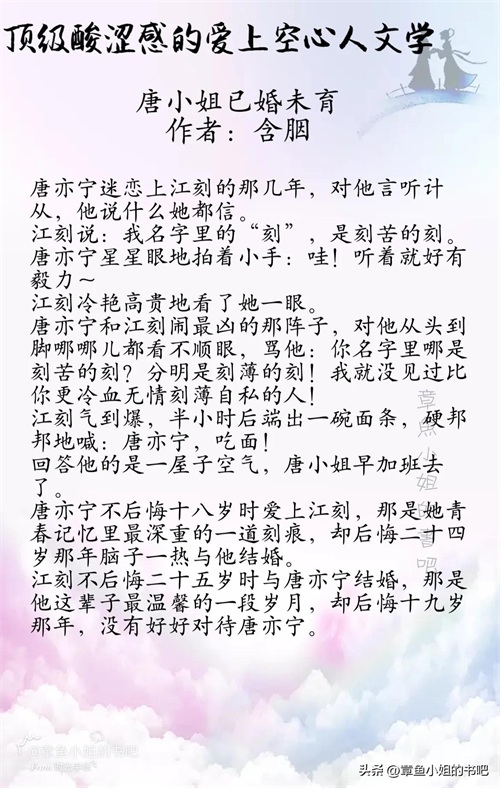 顶级酸涩感的爱上空心人文学
唐小姐已婚未育
作者：含胭
唐亦宁迷恋上江刻的那几年，对他言听计
从，他说什么她都信。
江刻说：我名字里的“刻”，是刻苦的刻。
唐亦宁星星眼地拍着小手：哇！听着就好有
毅力~
江刻冷艳高贵地看了她一眼。
唐亦宁和江刻闹最凶的那阵子，对他从头到
脚哪哪儿都看不顺眼，骂他：你名字里哪是
刻苦的刻？分明是刻薄的刻！我就没见过比
你更冷血无情刻薄自私的人！
江刻气到爆，半小时后端出一碗面条，硬邦
邦地喊：唐亦宁，吃面！
回答他的是一屋子空气，唐小姐早加班去
了。
唐亦宁不后悔十八岁时爱上江刻，那是她青
春记忆里最深重的一道刻痕，却后悔二十四
岁那年脑子一热与他结婚。
江刻不后悔二十五岁时与唐亦宁结婚，那是
他这辈子最温馨的一段岁月，却后悔十九岁
那年，没有好好对待唐亦宁。
章鱼小姐的书吧
@章鱼小姐的书吧
头条 @章鱼小姐的书吧